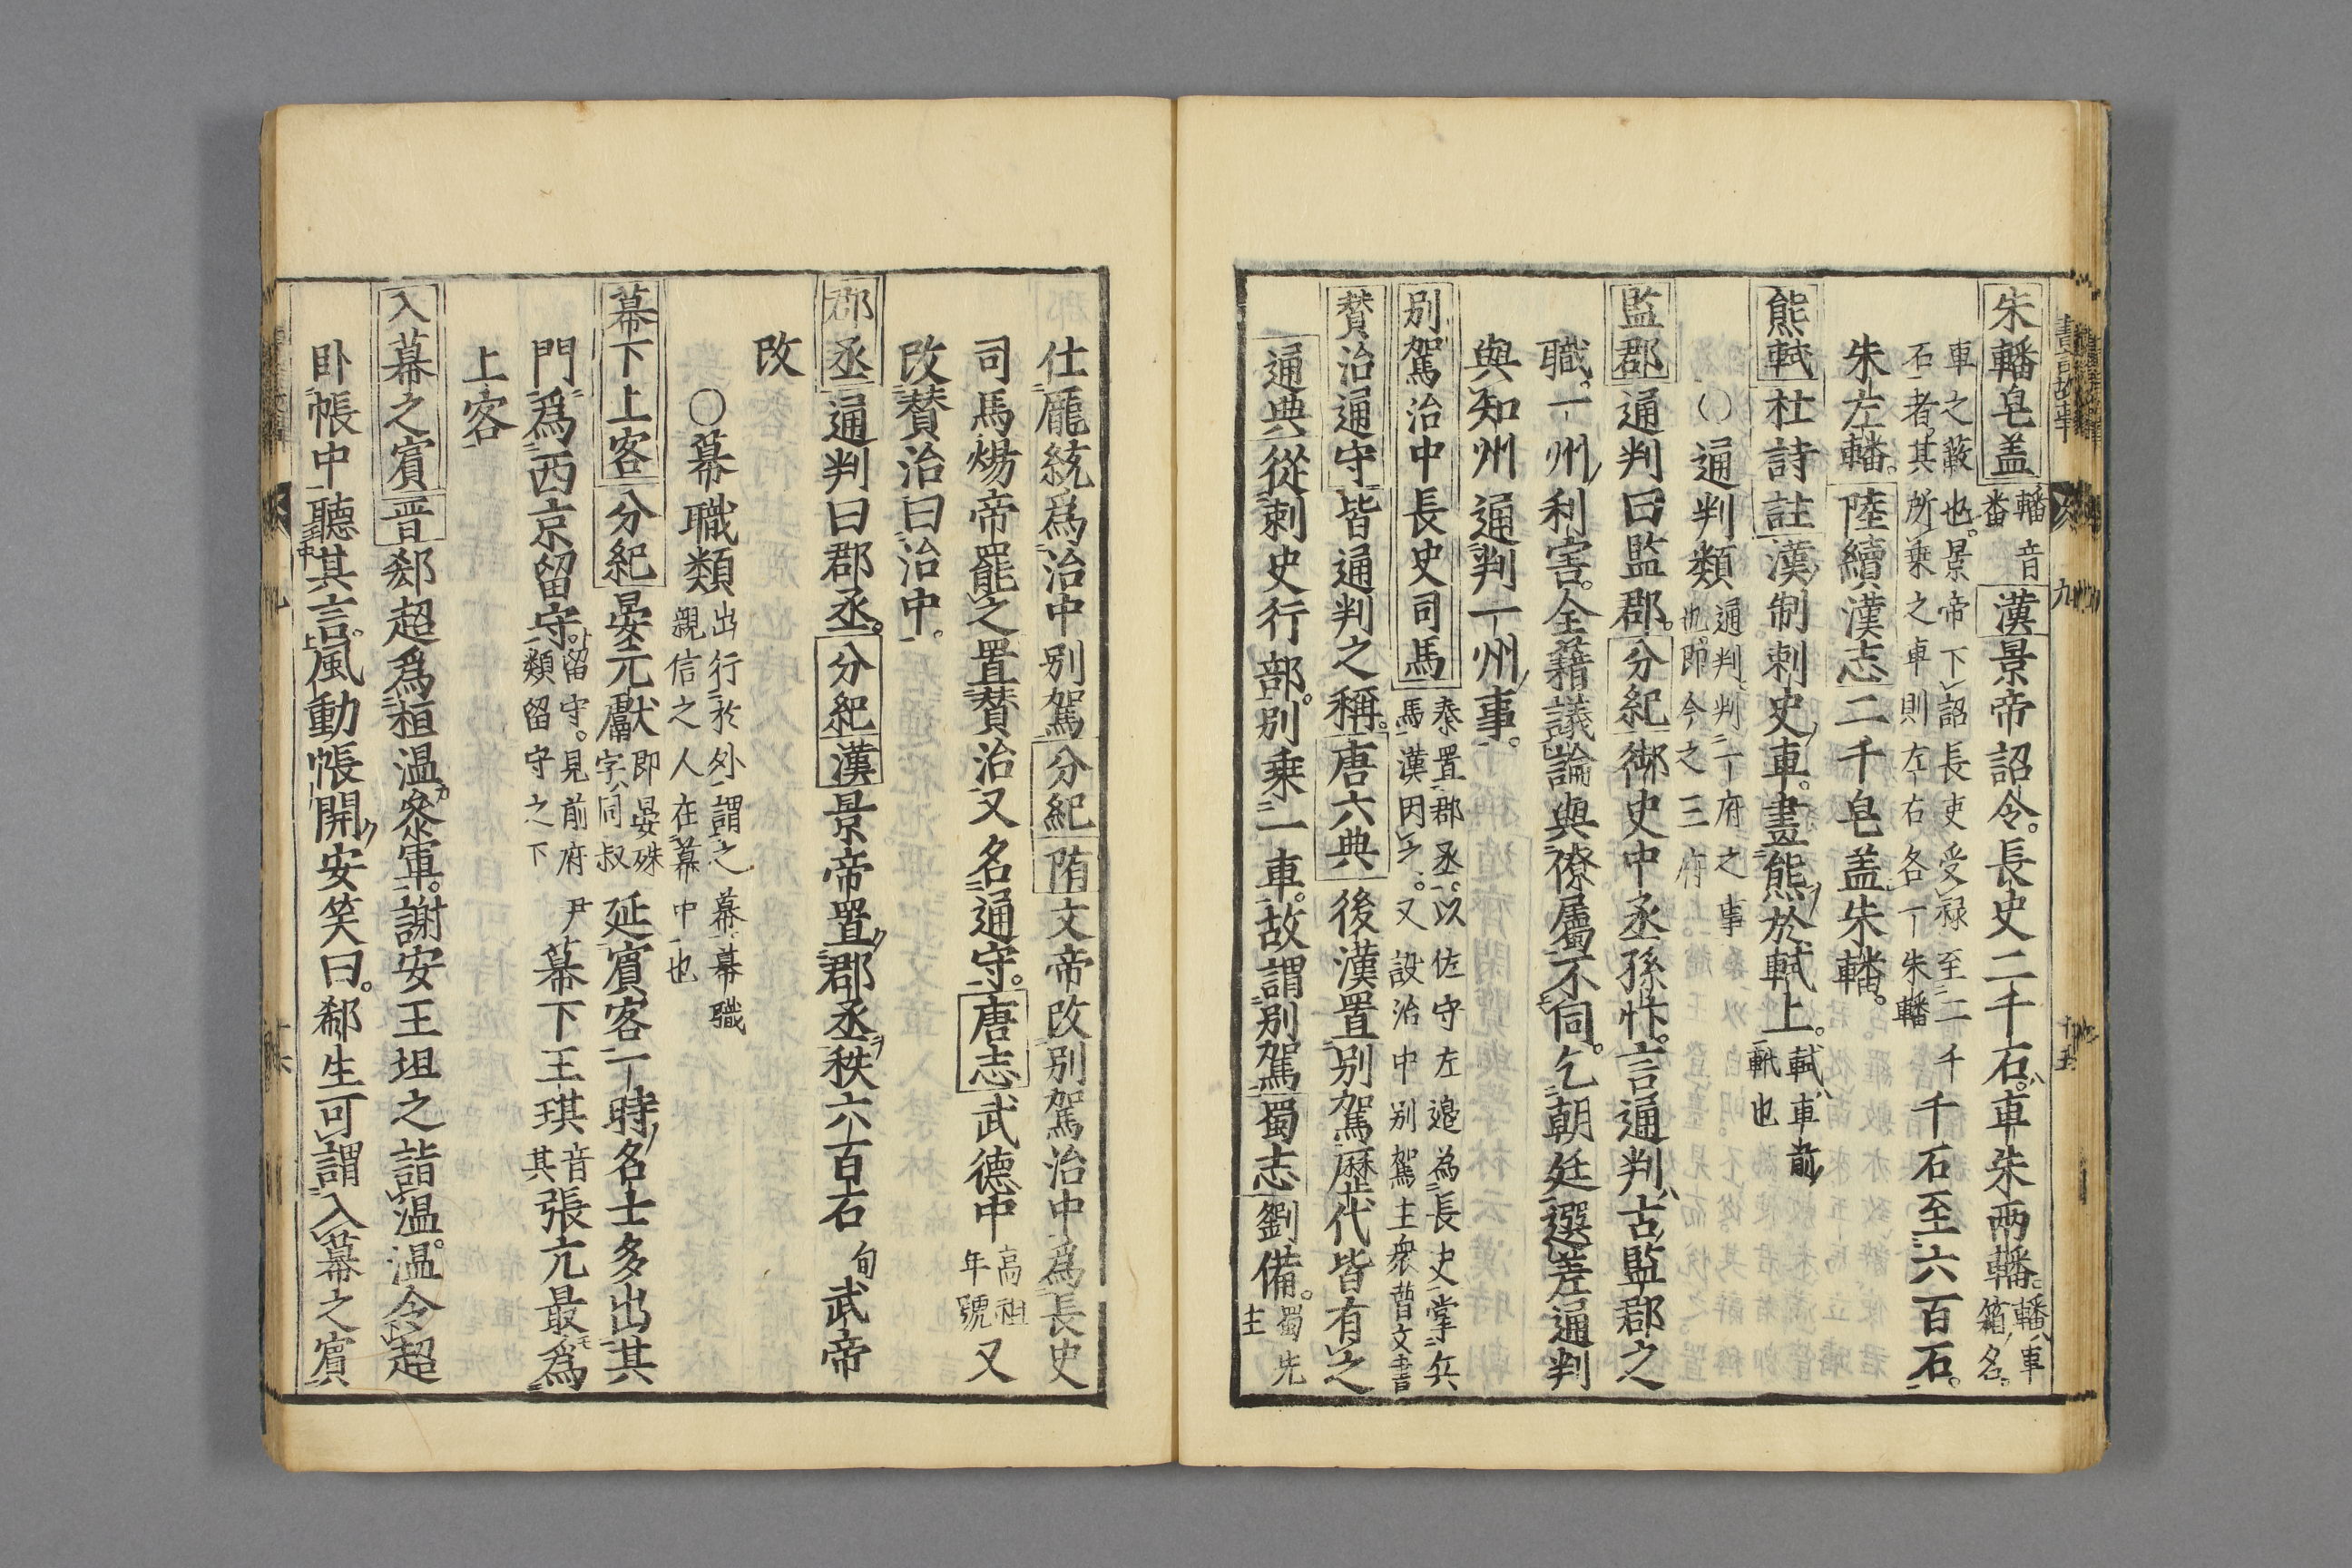 朱轓皂盖轓音番漢景帝詔令長史二千石車朱兩轓轓車箱名
車之蔽也景帝下詔長吏受禄至二千石者其所乗之車則左右各一朱轓千石至六百石
朱左轓陸續漢志二千皂盖朱轓
熊軾杜詩註漢制刺史車畫熊於軾上軾車前軾也
〇通判類通判判一府之事也即今之三府
監郡通判曰監郡分紀御史中丞孫忭言通判古監郡之
職一州利害全藉議論與僚屬不同乞朝廷選差通判
與知州通判一州事
別駕治中長史司馬秦置郡丞以佐守左邉為長史掌兵馬漢因之又設治中別駕主衆曹文書
賛治通守皆通判之稱唐六典後漢置別駕歴代皆有之
通典從刺史行部別乗一車故謂別駕蜀志劉備蜀先主
仕龐統爲治中別駕分紀隋文帝改別駕治中爲長史
司馬煬帝罷之置賛治又名通守唐志武德中高祖年號又
改賛治曰治中
郡丞通判曰郡丞分紀漢景帝置郡丞秩六百石旬武帝
改
〇幕職類出行於外謂之幕幕職親信之人在幕中也
幕下上客分紀晏元獻即晏殊字同叔延賓客一時名士多出其
門爲西京留守留守見前府尹類留守之下幕下王琪音其張亢最爲
上客
入幕之賓晋郄超爲桓温叅軍謝安王坦之詣温温令超
卧帳中聽其言風動帳開安笑曰郄生可謂入幕之賓